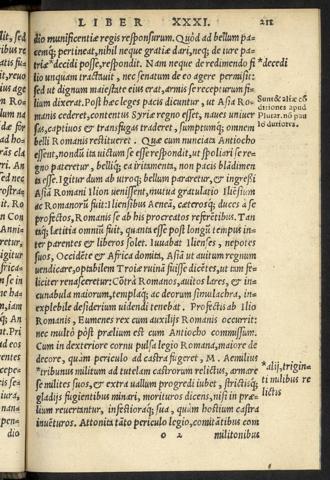 LIBER XXXI. 212
dio munificentiæ regis responsurum. Quòd ad bellum pa-
cemq; pertineat, nihil neque gratiæ dari, neq; de iure pa-
triæ *decidi posse, respondit. Nam neque de redimendo fi *decedi
lio unquam tractauit, nec senatum de eo agere permisit:
sed ut dignum maiestate eius erat, armis se recepturum fi-
lium dixerat. Post hæc leges pacis dicuntur, ut Asia Ro-
manis cederet, contentus Syriæ regno esset, naues uniuer
sas, captiuos & transfugas traderet, sumptumq; omnem
belli Romanis restitueret. Quæ cum nunciata Antiocho
Sunt & aliæ cõ
ditiones apud
Plutar. nõ pau
lò duriores.
essent, nondũ ita uictũ se esse respõdit, ut spoliari se re-
gno pateretur, belliq; ea irritamenta, non pacis blãdimen-
ta esse. Igitur dum ab utroq; bellum pararetur, & ingressi
Asia Romani Ilion uenissent, mutua gratulatio Iliẽsium
ac Romanorũ fuit: Iliensibus Aeneã, cæterosq; duces à se
profectos, Romanis se ab his procreatos referẽtibus. Tan
taq; lætitia omniũ fuit, quanta esse post longũ tempus in-
ter parentes & liberos solet. Iuuabat Ilienses, nepotes
suos, Occidẽte & Africa domiti, Asiã ut auitum regnum
uendicare, optabilem Troiæ ruinã fuisse dicẽtes, ut tam fe-
liciter renasceretur: Cõtrà Romanos, auitos lares, & in-
cunabula maiorum, templaq; ac deorum simulachra, in-
explebile desiderium uidendi tenebat. Profectis ab Ilio
Romanis, Eumenes rex cum auxilijs Romanis occurrit:
nec multò pòst prælium est cum Antiocho commissum.
Cum in dexteriore cornu pulsa legio Romana, maiore de
decore, quàm periculo ad castra fugeret, M. Aemilius
*tribunus militum ad tutelam castrorum relictus, armare
*alij, trigin-
ti militibus re
lictis
se milites suos, & extra uallum progredi iubet, strictisq;
gladijs fugientibus minari, morituros dicens, nisi in præ-
lium reuertantur, infestioraq; sua, quàm hostium castra
inuẽturos. Attonita tãto periculo legio, comitãtibus com
o 2 militonibus